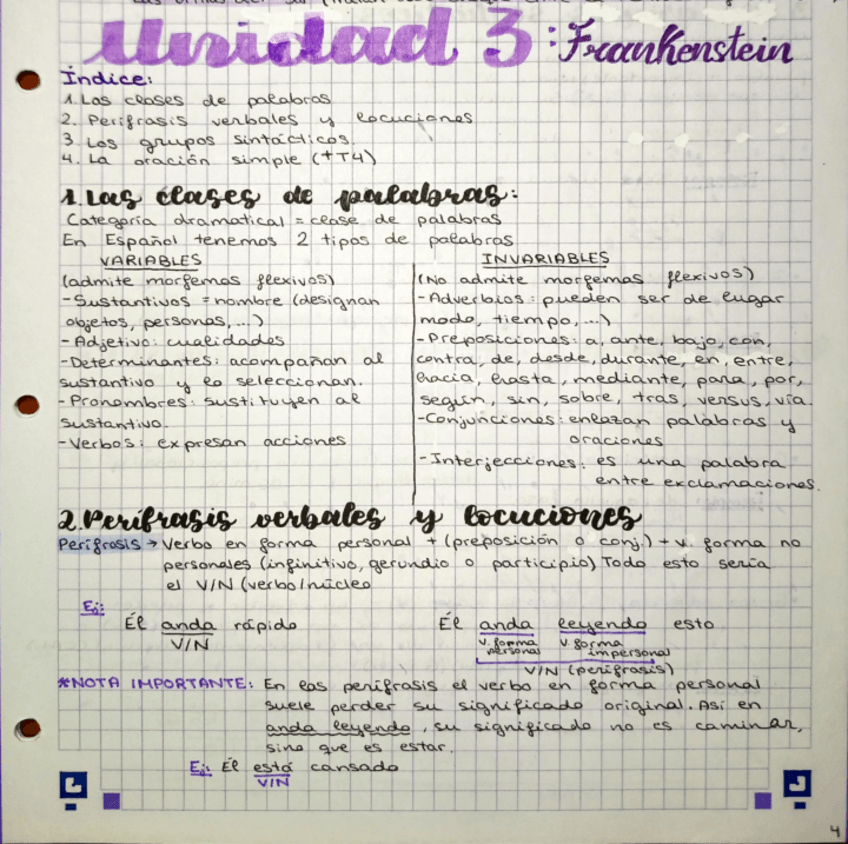 Unidad 3: Frankenstein
Índice:
1. Las clases de palabras
2. Perífrasis verbales y locuciones
3. Los grupos sintácticos.
4. La oración simple (+T4)
1. Las clases de palabras:
Categoría dramatical = clase de palabras
En Español tenemos 2 tipos de palabras
VARIABLES
(admite morfemas flexivos)
-Sustantivos = nombre (designan
objetos, personas, ...)
-Adjetivo: cualidades
-Determinantes: acompañan al
sustantivo y lo seleccionan.
-Pronombres: sustituyen al
sustantivo.
-Verbos: expresan acciones
INVARIABLES
(No admite morfemas flexivos)
-Adverbios: pueden ser de lugar
modo, tiempo, ...)
-Preposiciones: a, ante, bajo, con,
contra, de, desde, durante, en, entre,
hacia, hasta, mediante, para, por,
según, sin, sobre, tras, versus, vía.
-Conjunciones: enlazan palabras y
oraciones
-Interjecciones: es una palabra
entre exclamaciones.
2. Perífrasis verbales y locuciones
Perífrasis → Verbo en forma personal + (preposición o conj.) + v. forma no
personales (infinitivo, gerundio o participio) Todo esto sería
el V/N (verbo/núcleo
Ej:
Él anda rápido
V/N
Él anda leyendo esto
v. forma personal
v. forma impersonal
V/N (perífrasis)
*NOTA IMPORTANTE: En las perífrasis el verbo en forma personal
suele perder su significado original. Así en
anda leyendo, su significado no es caminar,
sino que es estar.
Ej: Él está cansado
V/N
4